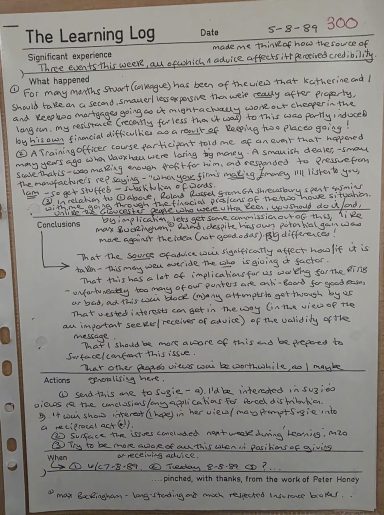 The Learning Log Date 5-8-89 300
Significant experience made me think of how the source of
Three events this week, all of which advice affects it perceived credibility.
What happened
① For many months Stuart (colleague) has been of the view that Katherine and I
should take on a second, smaller/less expensive than were ready after property,
and keep two mortgages going as it might actually work out cheaper in the
long run. My resistance (recently far less than it was) to this was partly induced
by his own financial difficulties as a result of keeping two places going!
② A Training Officer course participant told me of an event that happened
many years ago when Vauxhall were losing big money. A smallish dealer - small
scale that is - was making enough profit for him, and responded to pressure from
the manufacturer's rep saying - "when your firm's making money I'll listen to you,
" - go get stuffed - substitution of words.
③ In relation to ① about, Roland Russel from GA Shrewsbury spent
with me going through the financial pros/cons of the two house situation.
Unlike the Gloucester people who were ultra keen, up-should do it/and,
Conclusions by implication, lets get some commission out of this, like
Max Buckingham, Roland, despite his own potential gain was
more against the idea (not good odds) Big difference!
That the source of advice can significantly affect how/if it is
taken - this may well override the who is giving it factor.
That this has a lot of implications for us working for the
- unfortunately too many of our punters are anti-Board for good reason
or bad, and this will block (m)any attempts to get through by us
That vested interests can get in the way (in the view of the
all important seeker/receiver of advice) of the validity of the
message.
That I should be more aware of this and be prepared to
surface/confront this issue.
That other people's views will be worthwhile as I may be
Actions generalising here.
① send this are to Suzie - a). I'd be interested in Suzie's
views re the conclusions/any applications for Parcel distribution.
b). it will show interest (I hope) in her view/may prompt Suzie into
a reciprocal act(s).
② Surface the issues concluded next week during 'Learning'.
③ Try to be more aware of all this when in positions of giving
When or receiving advice.
→ ① w/c 7-8-89. ② Tuesday 8-8-89 ③ ?...
...pinched, with thanks, from the work of Peter Honey
Max Buckingham - long-standing and much respected Insurance broker...